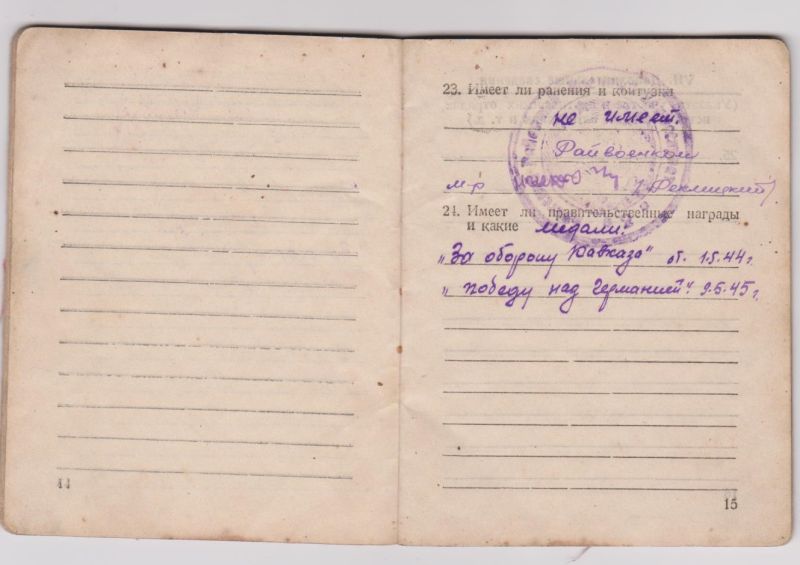 23. Имеет ли ранения и контузии
не имеет.
Райвоенком
м-р
24. Имеет ли правительственные награды
и какие медали.
„За оборону Кавказа" от 1.5.44 г.
„победу над Германией". 9.5.45 г.
14
15